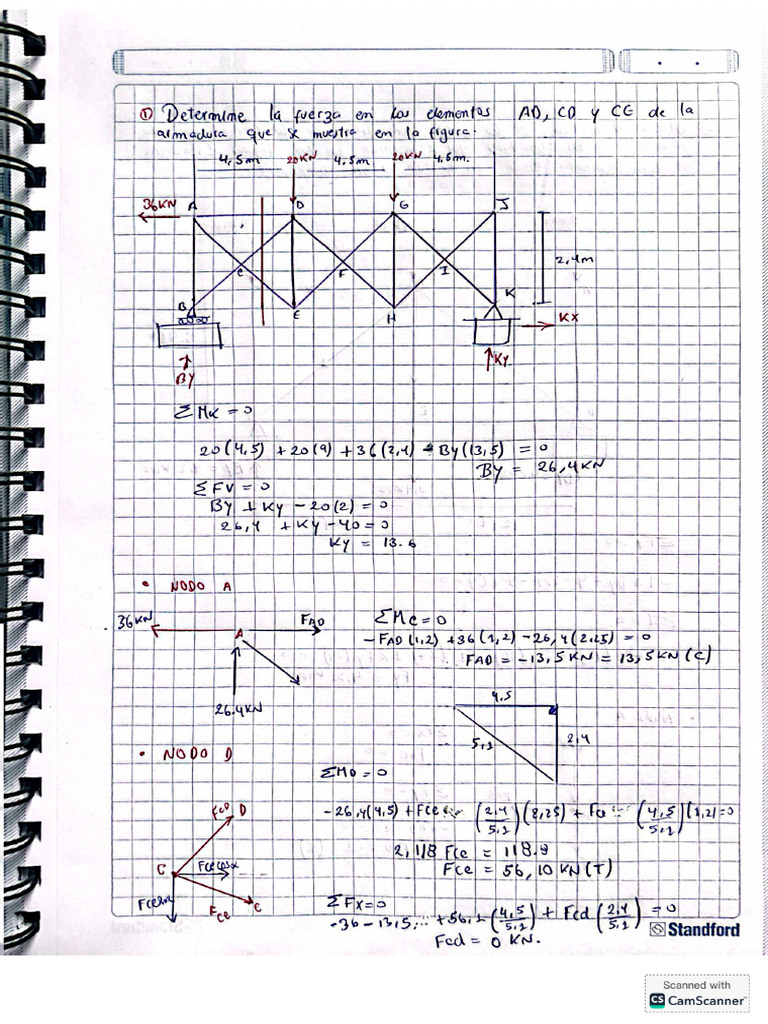 ① Determine la fuerza en los elementos AD, CD y CE de la
armadura que se muestra en la figura.
4,5m 20KN 4,5m 20KN 4,5m.
36KN A D G J
2,4m
C F I
B E H K
KX
BY KY
ΣMK = 0
20(4,5) + 20(9) + 36(2,4) - By(13,5) = 0
BY = 26,4KN
ΣFV = 0
BY + KY - 20(2) = 0
26,4 + KY - 40 = 0
KY = 13.6
• NODO A
36KN A FAD
26.4KN
ΣMC = 0
-FAD(1,2) + 36(1,2) - 26,4(2,25) = 0
FAD = -13,5KN = 13,5KN (C)
4,5
5,1 2,4
• NODO D
ΣMD = 0
-26,4(4,5) + Fce (2,4/5,1)(2,25) + Fce (4,5/5,1)(1,2) = 0
2,118 Fce = 118.8
Fce = 56,10 KN (T)
FCD D
C Fce cosα
Fce E
ΣFX = 0
-36 - 13,5... + 56,1 (4,5/5,1) + Fcd (2,4/5,1) = 0
Fcd = 0 KN.
Standford
Scanned with
CS CamScanner